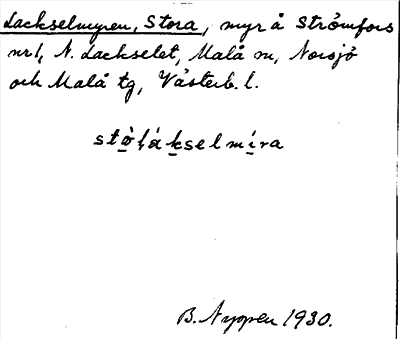 Lackselmyren, Stora, myr å Strömfors
nr 1, N. Lackselet, Malå sn, Norsjö
och Malå tg, Västerb. l.
stò̱ļákselmíra
B. Nyppen 1930.